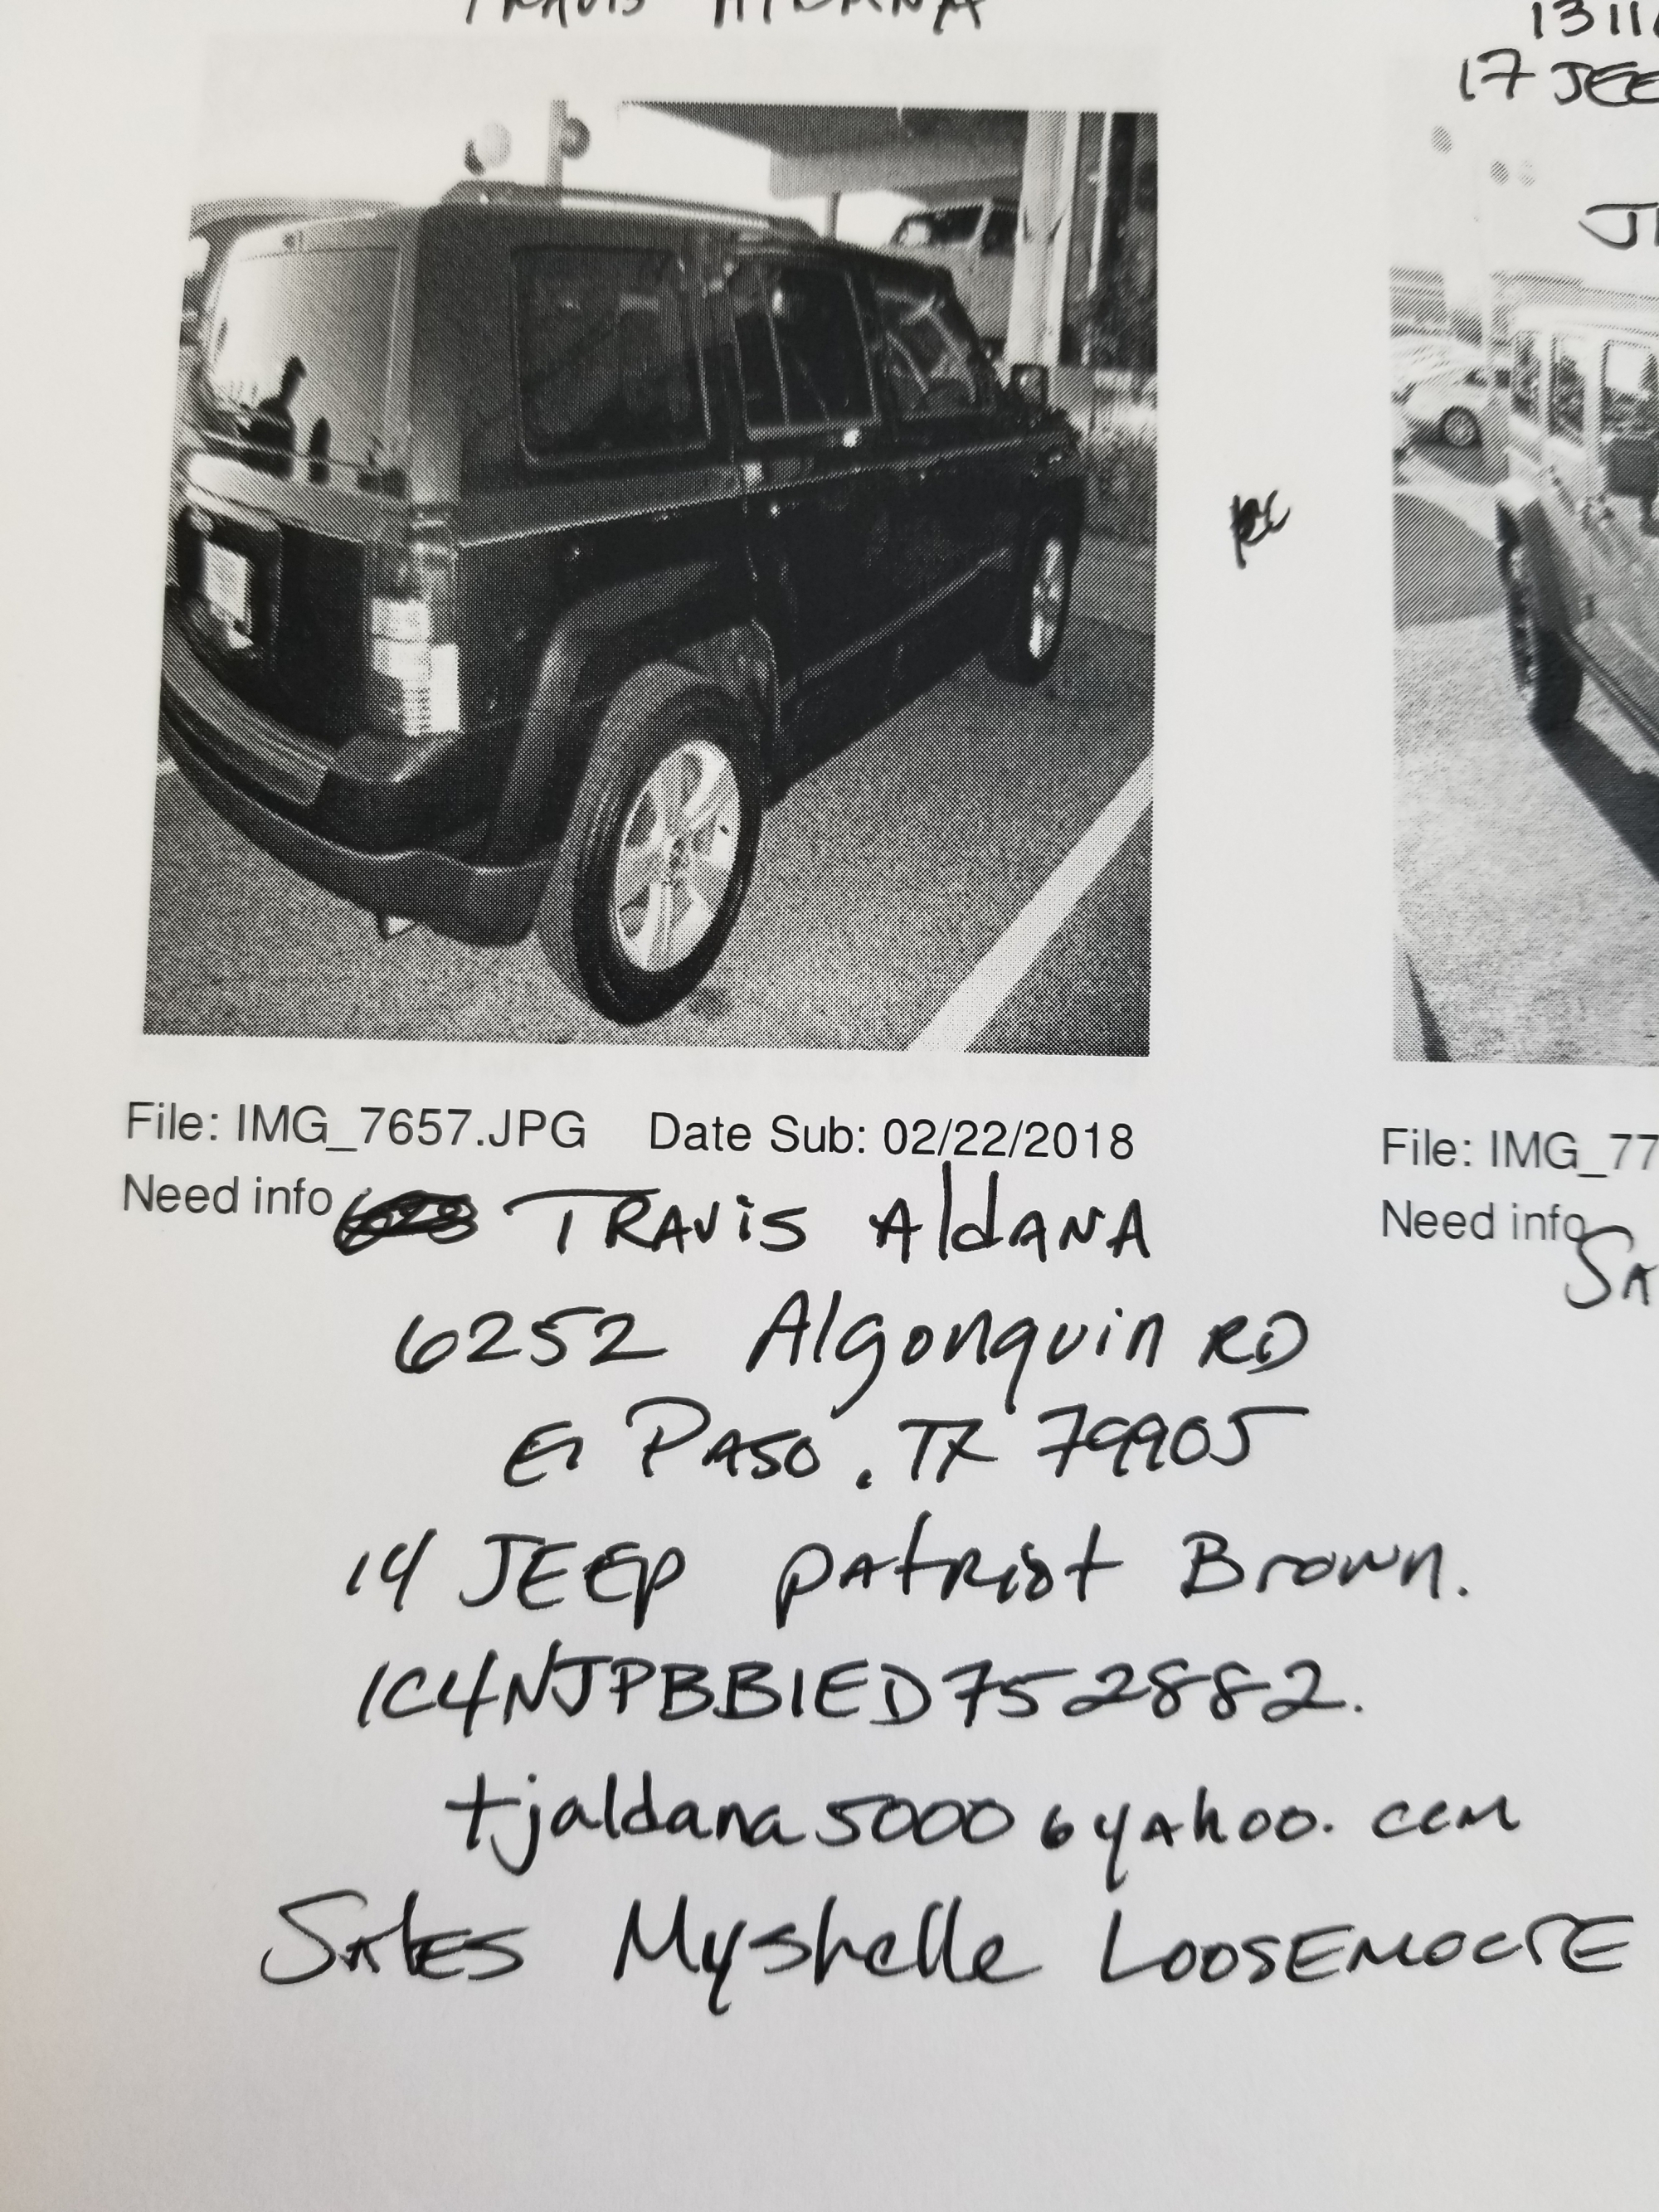 TRAVIS
1311
17 JEE
File: IMG_7657.JPG Date Sub: 02/22/2018
Need info TRAVIS AldANA
6252 Algonquin RD
El PASO. TX 79905
14 JEEP PAtRiot Brown.
1C4NJPBB1ED752882.
tjaldana5000@yahoo.com
SAlES Myshelle LOOSEMOORE
File: IMG_77
Need info
SA